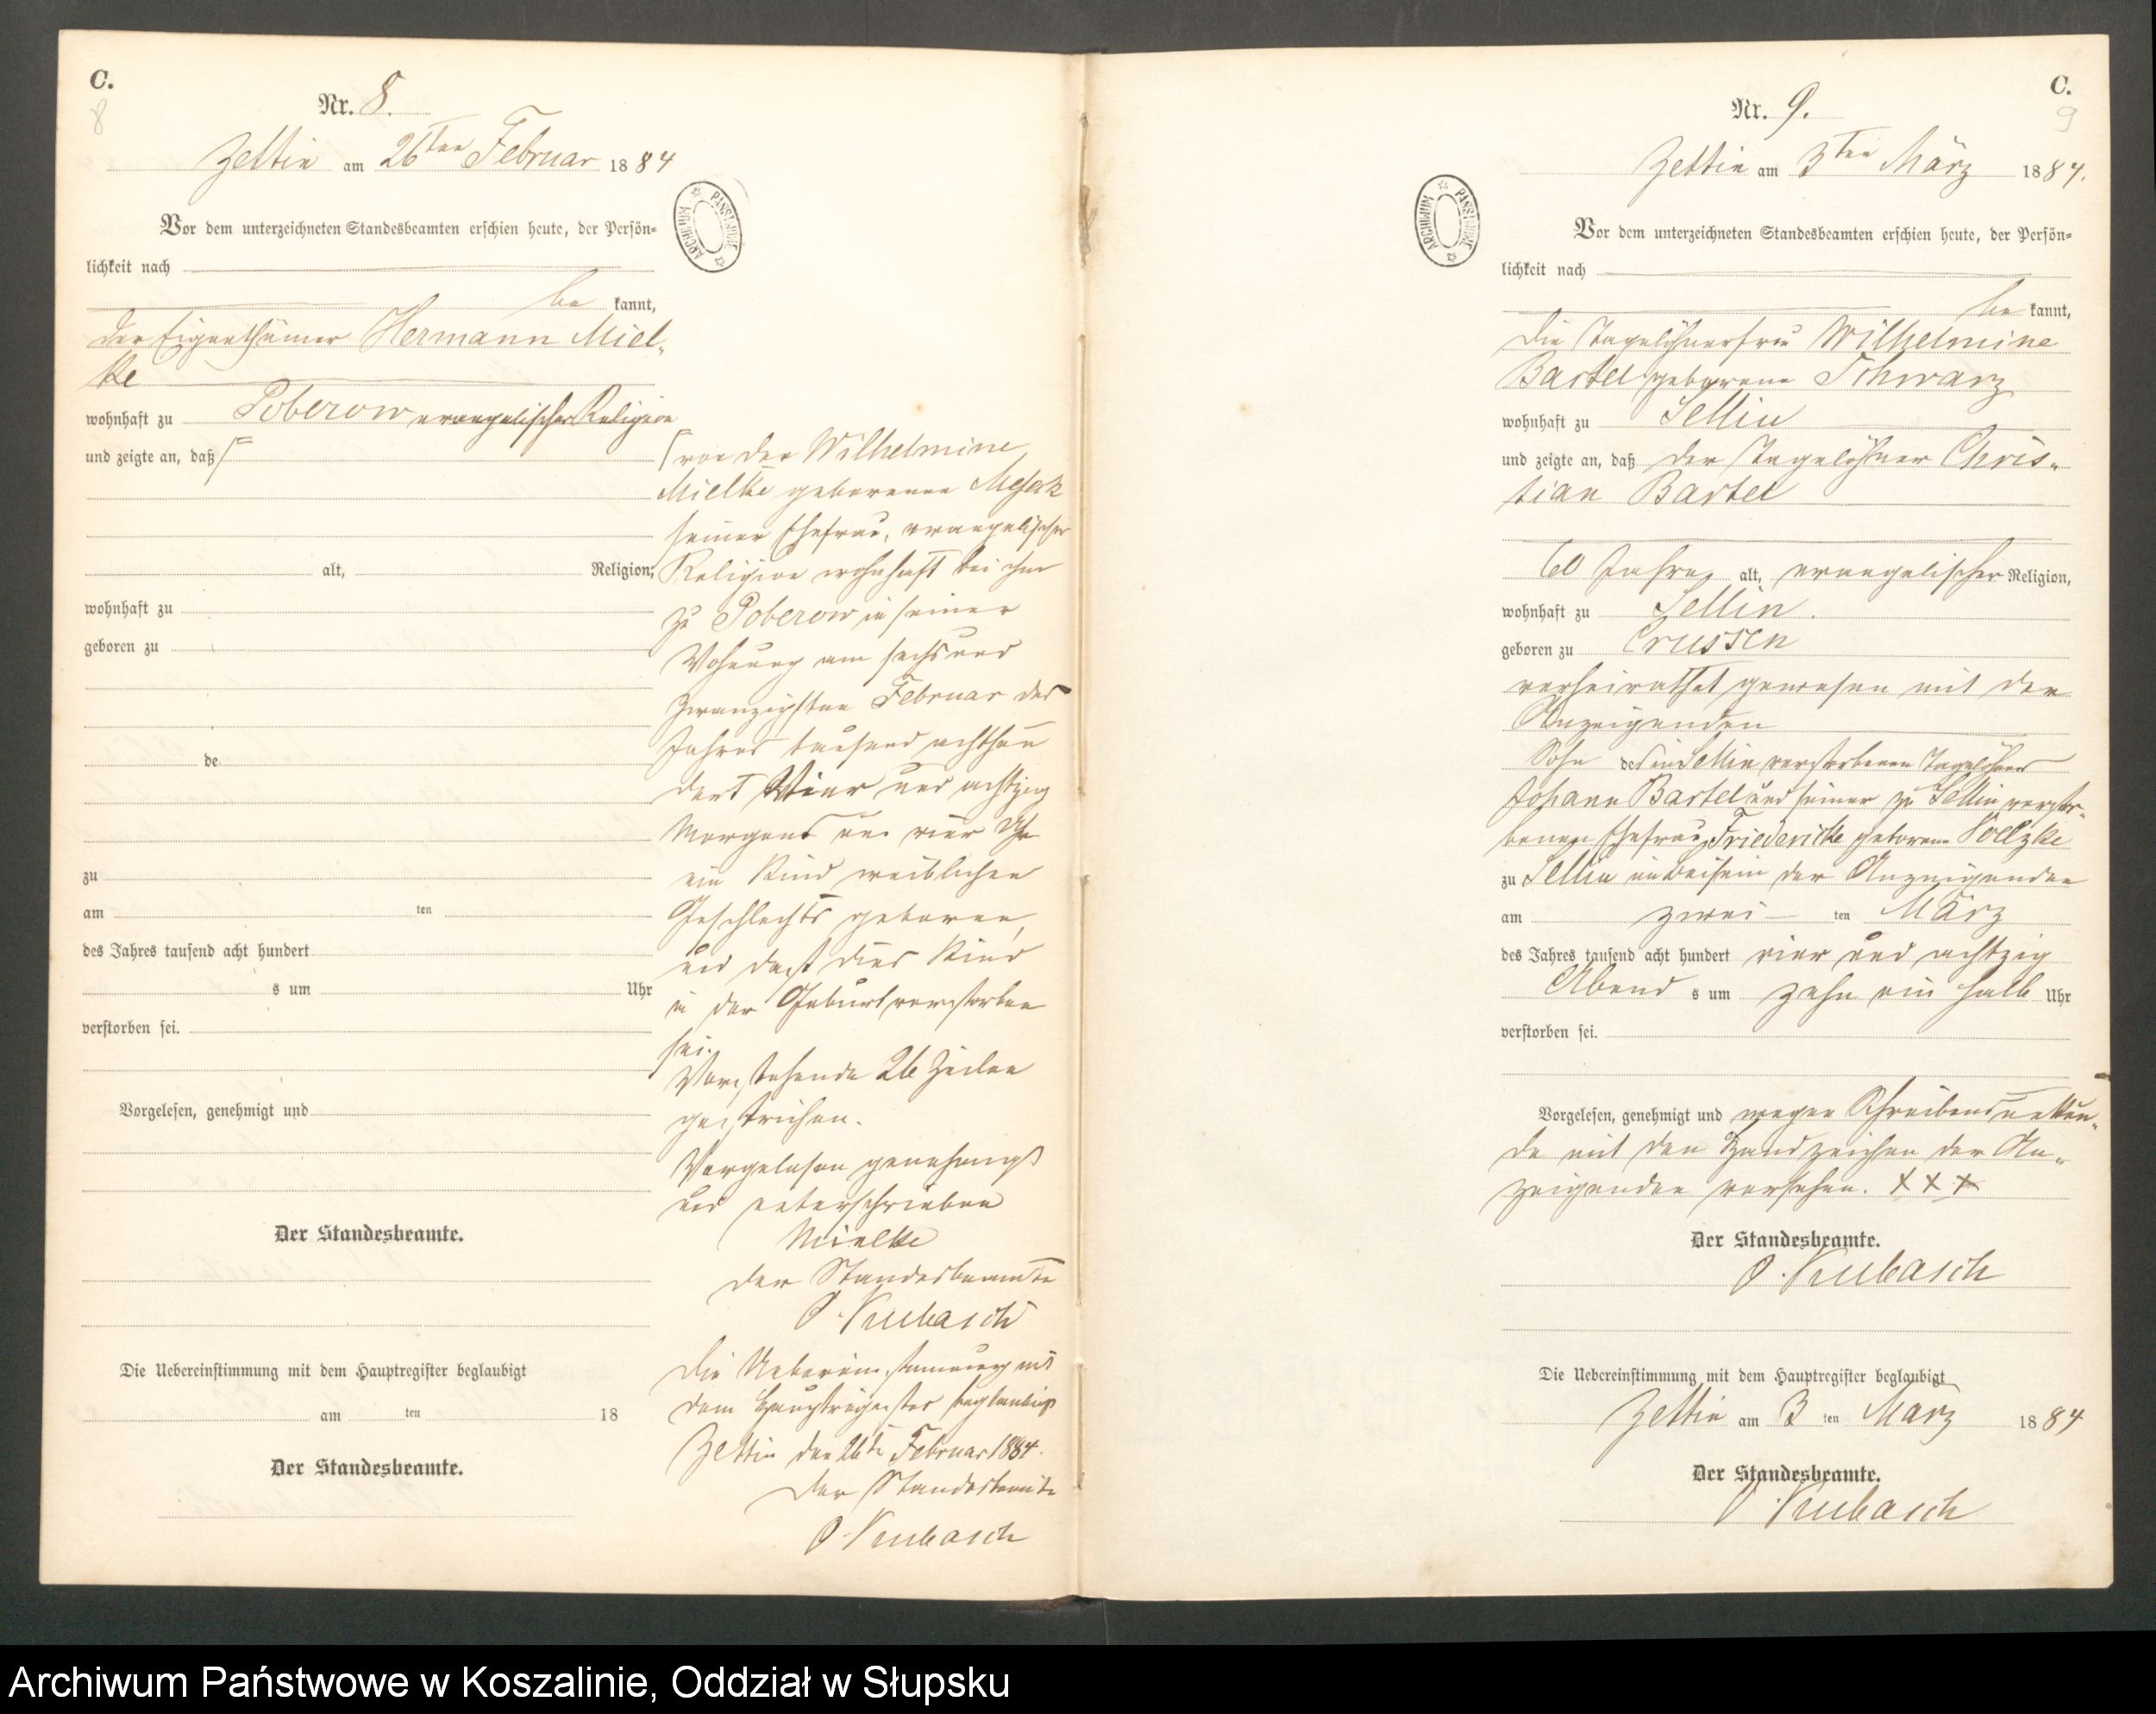 C.
8
Nr. 8.
Zettin am 26ten Februar 1884
Vor dem unterzeichneten Standesbeamten erschien heute, der Persön-
lichkeit nach
be kannt,
der Eigenthümer Hermann Miel-
ke
wohnhaft zu Poberow evangelischer Religion
und zeigte an, daß
alt, Religion,
wohnhaft zu
geboren zu
de
zu
am ten
des Jahres tausend acht hundert
s um Uhr
verstorben sei.
Vorgelesen, genehmigt und
Der Standesbeamte.
Die Uebereinstimmung mit dem Hauptregister beglaubigt
am ten 18
Der Standesbeamte.
ARCHIWUM PAŃSTWOWE
von der Wilhelmine
Mielke geborenen
seiner Ehefrau, evangelischer
Religion wohnhaft bei ihm
zu Poberow in seiner
Wohnung am sechs und
zwanzigsten Februar des
Jahres tausend achthun
dert Vier und achtzig
Morgens um vier Uhr
ein Kind weiblichen
Geschlechts geboren,
und daß dies Kind
in der Geburt verstorben
sei.
Vorstehende 26 Zeilen
gestrichen.
Vorgelesen genehmigt
und unterschrieben
Mielke
Der Standesbeamte
Die Uebereinstimmung mit
dem Hauptregister beglaubigt
Zettin den 26te Februar 1884.
Der Standesbeamte
C.
9
Nr. 9.
Zettin am 3ten März 1884.
ARCHIWUM PAŃSTWOWE
Vor dem unterzeichneten Standesbeamten erschien heute, der Persön-
lichkeit nach
be kannt,
die Tagelöhnerfrau Wilhelmine
Bartel geborene Schwarz
wohnhaft zu Sellin
und zeigte an, daß der Tagelöhner Chris-
tian Bartel
60 Jahre alt, evangelischer Religion,
wohnhaft zu Sellin.
geboren zu Crussen
verheirathet gewesen mit der
Anzeigenden
Sohn des in Sellin verstorbenen Tagelöhners
Johann Bartel und seiner zu Sellin verstor-
benen Ehefrau Friedericke geborene Voelzke
zu Sellin im Beisein der Anzeigenden
am zwei ten März
des Jahres tausend acht hundert vier und achtzig
Abend s um zehn ein halb Uhr
verstorben sei.
Vorgelesen, genehmigt und wegen Schreibensunkun-
de mit den Handzeichen der An-
zeigenden versehen. XXX
Der Standesbeamte.
Die Uebereinstimmung mit dem Hauptregister beglaubigt
Zettin am 3 ten März 1884
Der Standesbeamte.
Archiwum Państwowe w Koszalinie, Oddział w Słupsku